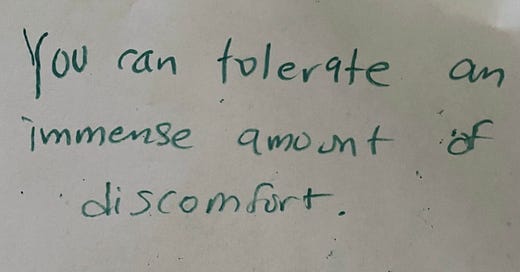 You can tolerate an
immense amount of
discomfort.